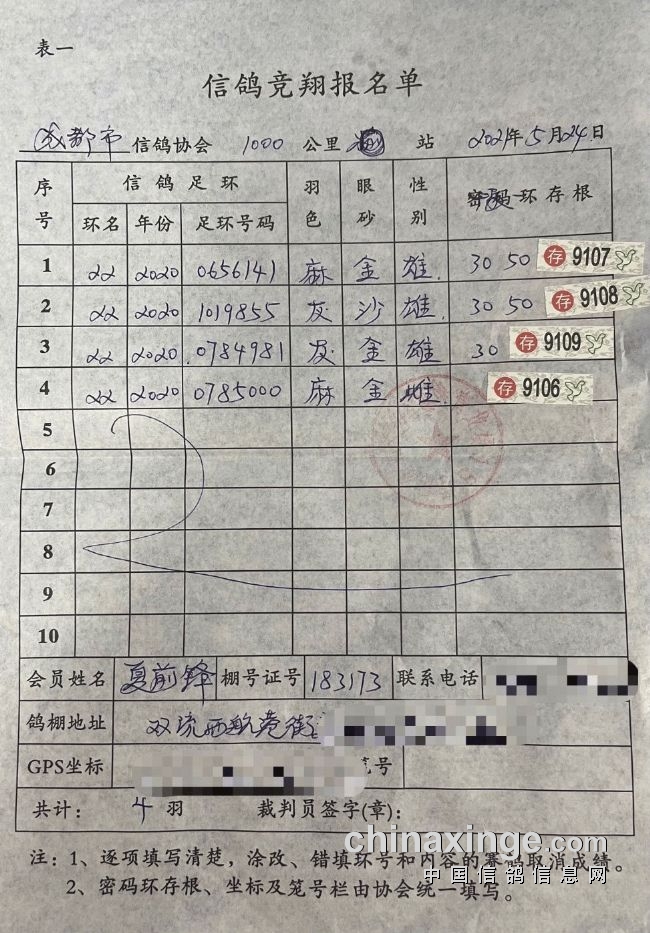 表一
信鸽竞翔报名单
成都市 信鸽协会 1000 公里 站 2021年5月24日
序号 信鸽足环 羽色 眼砂 性别 密码环存根
环名 年份 足环号码
1 22 2020 0656141 麻 金 雄 30 50 存 9107
2 22 2020 1019855 灰 沙 雄 30 50 存 9108
3 22 2020 0784981 灰 金 雄 30 存 9109
4 22 2020 0785000 麻 金 雄 存 9106
5
6
7
8
9
10
会员姓名 夏前锋 棚号证号 183173 联系电话
鸽棚地址 双流西航港街
GPS坐标 笼号
共计: 4 羽 裁判员签字(章):
注: 1、逐项填写清楚，涂改、错填环号和内容的赛鸽取消成绩。
2、密码环存根、坐标及笼号栏由协会统一填写。
chinaxinge.com
中国信鸽信息网